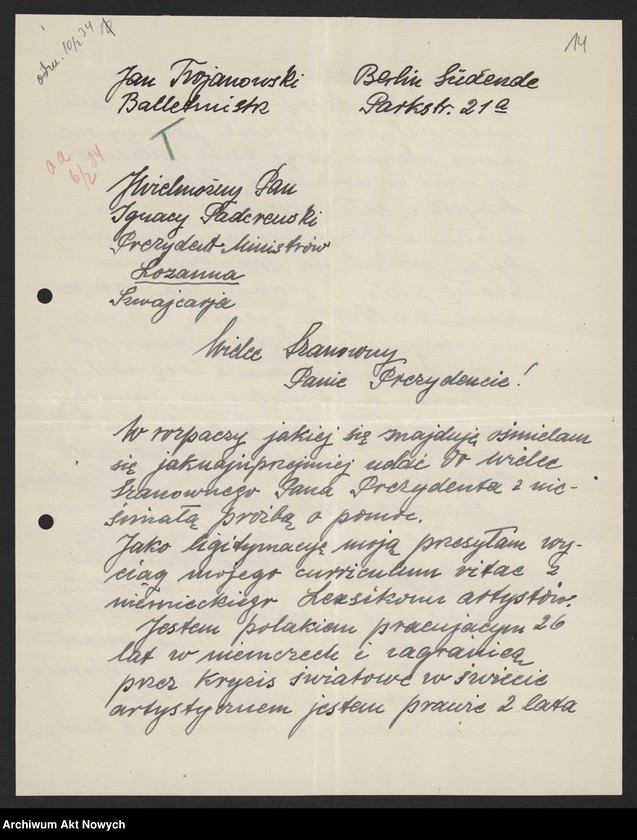 14
Jan Trojanowski
Balletmistrz
Berlin Südende
Parkstr. 21a
T
aa
6/2 34
JWielmożny Pan
Ignacy Paderewski
Prezydent Ministrów
Lozanna
Szwajcarja
Wielce Szanowny
Panie Prezydencie!
W rozpaczy jakiej się znajduję ośmielam
się jaknajuprzejmiej udać do wielce
Szanownego Pana Prezydenta z nie-
śmiałą prośbą o pomoc.
Jako ligitymację moją przesyłam wy-
ciąg mojego curriculum vitae z
niemieckiego Leksikonu artystów.
Jestem polakiem pracującym 26
lat w niemczech i zagranicą
przez kryzis światowe w świecie
artystycznem jestem prawie 2 lata
Archiwum Akt Nowych